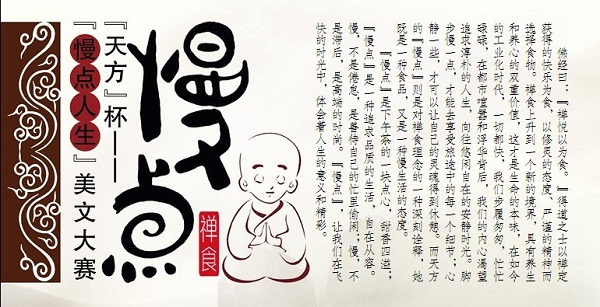 佛经曰:『禅悦以为食。』得道之士以禅定
获得的快乐为食,以修灵的态度、严谨的精神而
选择食物。禅食上升到一个新的境界,具有养生
和养心的双重价值,这才是生命的本味。在如今
的工业化时代,一切都快,我们步履匆匆,忙忙
碌碌,在都市喧嚣和浮华背后,我们的内心渴望
追求淳朴的人生,向往悠闲自在的安静时光。脚
步慢一点,才能去享受旅途中的每一个细节;心
静一些,才可以让自己的灵魂得到休憩。而天方
的『慢点』则是对禅食理念的一种深刻诠释,她
既是一种食品,又是一种慢生活的态度。
『慢点』是下午茶的一块点心,甜香四溢;
『慢点』是一种追求品质的生活,自在从容。
慢,不是倦怠,是善待自己的忙里偷闲;慢,不
是滞后,是高端的时尚。『慢点』,让我们在飞
快的时光中,体会着人生的意义和精彩。
禅食
慢点
『天方』杯——
『慢点人生』美文大赛